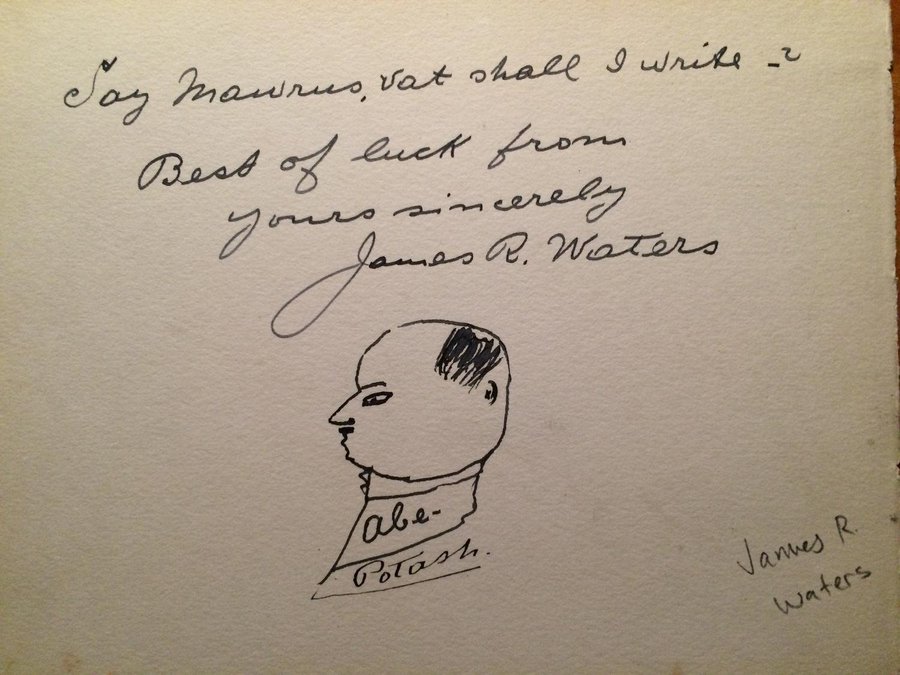 Say Mawrus, vat shall I write -?
Best of luck from
yours sincerely
James R. Waters
Abe-
Potash.
James R.
Waters